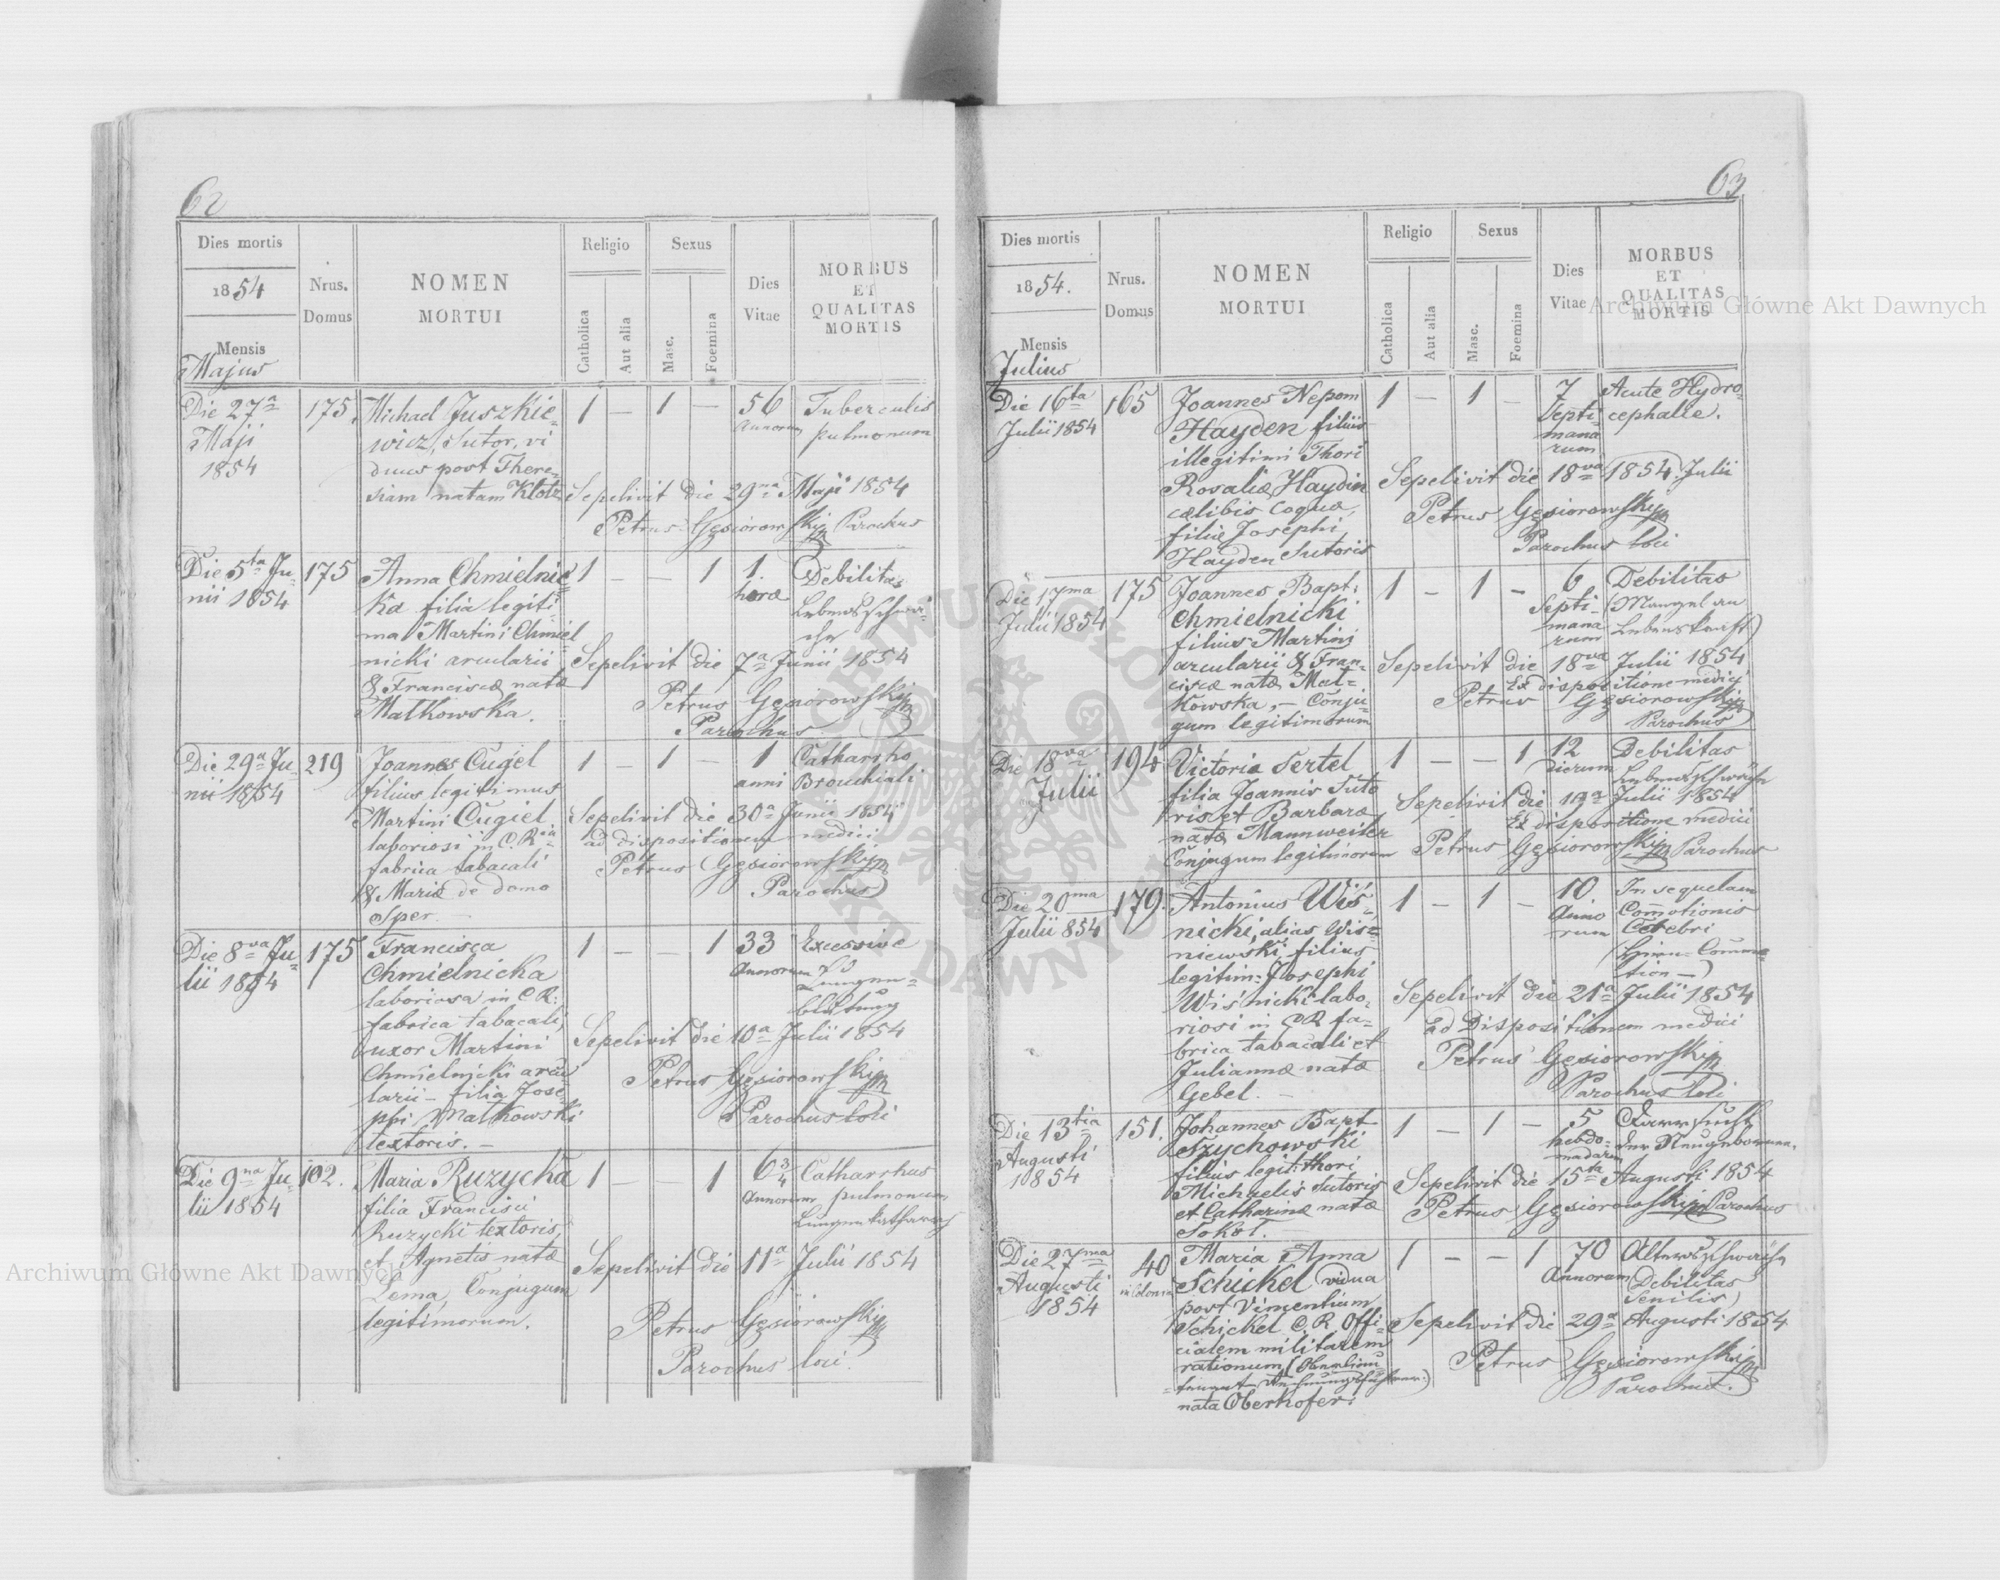 62
Dies mortis
1854
Mensis
Majus
Nrus.
Domus
NOMEN
MORTUI
Religio
Catholica
Aut alia
Sexus
Masc.
Foemina
Dies
Vitae
MORBUS
ET
QUALITAS
MORTIS
Die 27a
Maji
1854
175.
Michael Juszkie-
wicz, Sutor, vi
duus post There-
siam natam Klotz
1 — 1 —
56
Annorum
Tuberculis
pulmonum
Sepelivit die 29na Maji 1854
Petrus Gęsiorowski Parochus
Die 5ta Ju-
nii 1854
175
Anna Chmielnic
ka filia legiti-
ma Martini Chmiel
nicki arcularii
& Franciscæ natæ
Malkowska.
1 — — 1
1.
hora
Debilitas
Lebensschwä-
che
Sepelivit die 7a Junii 1854
Petrus Gęsiorowski
Parochus
Die 29a Ju-
nii 1854
219
Joannes Cugel
filius legitimus
Martini Cugiel
laboriosi in C.R.
fabrica tabacali
& Mariæ de domo
Sper.
1 — 1 —
1
anni
Catharrho
Bronchiali
Sepelivit die 30a Junii 1854
ad dispositionem medici
Petrus Gęsiorowski
Parochus
Die 8va Ju-
lii 1854
175
Francisca
Chmielnicka
laboriosa in C.R.
fabrica tabacali,
uxor Martini
Chmielnicki arcu
larii — filia Jose-
phi Malkowski
textoris. —
1 — — 1
33
Annorum
Excessive
Lungen-
blutung
Sepelivit die 10a Julii 1854
Petrus Gęsiorowski
Parochus loci
Die 9na Ju-
lii 1854
102.
Maria Ruzycka
filia Francisci
Ruzycki textoris,
et Agnetis natæ
Lema, Conjugum
legitimorum.
1 — — 1
6 3/4
Annorum
Catharrhus
pulmonum
Lungenkatharrh
Sepelivit die 11a Julii 1854
Petrus Gęsiorowski
Parochus loci.
63
Dies mortis
1854.
Mensis
Julius
Nrus.
Domus
NOMEN
MORTUI
Religio
Catholica
Aut alia
Sexus
Masc.
Foemina
Dies
Vitae
MORBUS
ET
QUALITAS
MORTIS
Die 16ta
Julii 1854
165
Joannes Nepom
Hayden filius
illegitimi Thori
Rosaliæ Haydin
cælibis Coquæ,
filiæ Josephi
Hayden Sutoris
1 — 1 —
7
Septi-
mana
rum
Acute Hydro-
cephalie.
Sepelivit die 18va 1854. Julii
Petrus Gęsiorowski
Parochus loci
Die 17ma
Julii 1854
175
Joannes Bapt:
Chmielnicki
filius Martini
arcularii & Fran-
ciscæ natæ Mal-
kowska, — Conju-
gum legitimorum
1 — 1 —
6
Septi-
mana
rum
Debilitas
(Mangel an
Lebenskraft)
Sepelivit die 18va Julii 1854
Ex dispositione medici
Petrus Gęsiorowski
Parochus
Die 18va
Julii
194
Victoria Sertel
filia Joannis Suto
ris et Barbaræ
natæ Mannweiler
Conjugum legitimorum
1 — — 1
12
dierum
Debilitas
Lebensschwäche
Sepelivit die 19a Julii 1854
Ex dispositione medici
Petrus Gęsiorowski Parochus
Die 20ma
Julii 854
179.
Antonius Wiś-
nicki, alias Wis-
niewski filius
legitim: Josephi
Wiśnicki labo-
riosi in C.R. fa-
brica tabacali et
Juliannæ natæ
Gebel. —
1 — 1 —
10
Anno
rum
In sequelam
Commotionis
Cerebri
(Hirn-Commo-
tion —)
Sepelivit die 21a Julii 1854
ad Dispositionem medici
Petrus Gęsiorowski
Parochus loci
Die 13tia
Augusti
1854
151.
Johannes Bapt
Szychowski
filius legit: thori
Michaelis Sutoris
et Catharinæ natæ
Sokół.
1 — 1 —
5
hebdo-
madarum
der Neugeborenen.
Sepelivit die 15ta Augusti 1854
Petrus Gęsiorowski Parochus
Die 27ma
Augusti
1854
40
in Colonia
Maria Anna
Schickel vidua
post Vincentium
Schickel C.R. Offi-
cialem militarem
rationum
nata Oberhofer.
1 — — 1
70
Annorum
Altersschwäche
(Debilitas
Senilis)
Sepelivit die 29a Augusti 1854
Petrus Gęsiorowski
Parochus.
Archiwum Główne Akt Dawnych
Archiwum Główne Akt Dawnych
ARCHIWUM GŁÓWNE AKT DAWNYCH